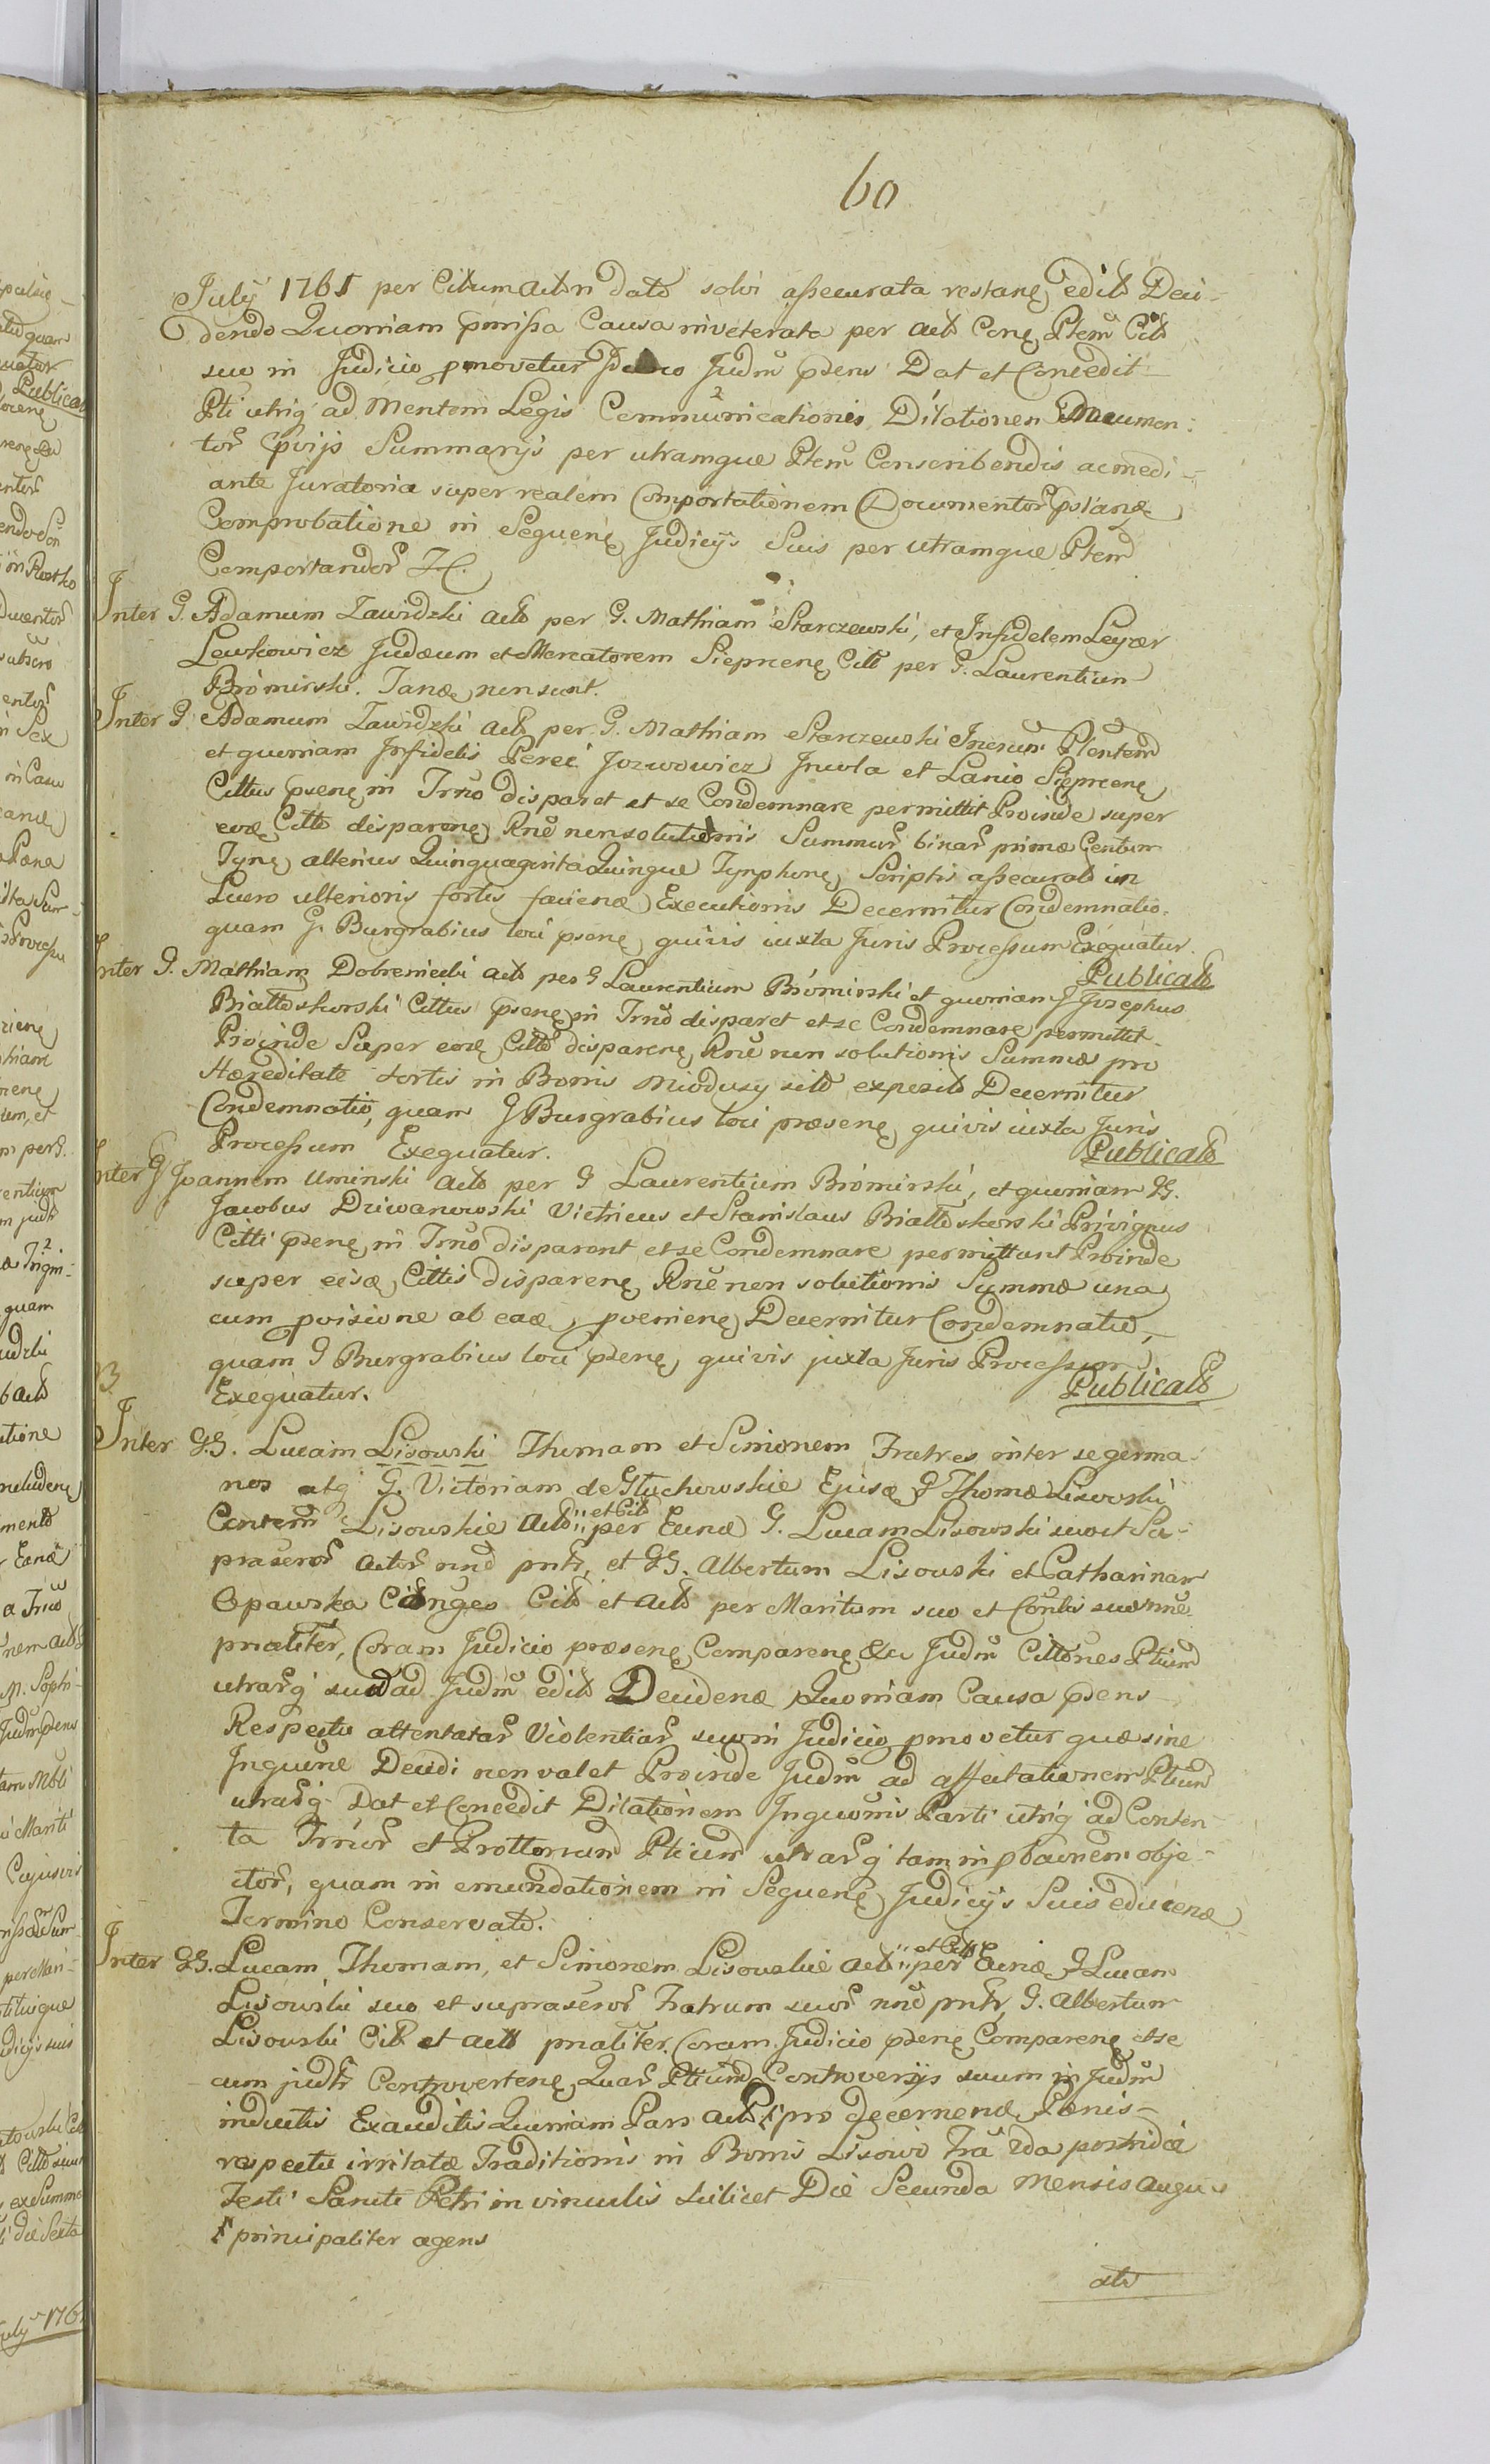 60
July 1761 per Citum Actori dato solvi assecurata restanę edit Deci-
dendo Quoniam pmissa Causa inveterata per act Conę Ptem Cit
suo in Judicio pmovetur Judm psens Dat et Concedit
Pti utriq ad Mentem Legis Communicationis Dilationem Documen-
tor pvijs Summarijs per utramque Ptem Conscribendis ac medi-
ante Juratoria super realem Comportationem Documentor pstanę
Comprobatione in Sequenę Judicijs Suis per utramque Ptem
Comportandor
Inter G. Adamum Zawidzki act per G. Mathiam Starczewski, et Infidelem Leyzer
Lewkowicz Judæum et Mercatorem Siepscenę Citt per G. Laurentium
Bromirski. Tanę non sunt.
Inter G Adamum Zawidzki act per G. Mathiam Starczewski Ptentem
et quoniam Infidelis Jozwowicz Incola et Lanio Siepscenę
Cittus psenę in Trno disparet et se Condemnare permittit Proinde super
eoę Citto disparenę Rne non solutionis Summar binar primæ Centum
Tynę alterius Quinquaginta Quinque Tynphonę Scriptis assecurat in
Lucro ulterioris fortis faciendæ Executionis Decernitur Condemnatio
quam G. Burgrabius loci psenę quivis iuxta Juris Processum Exequatur.
Publicat
Inter G. Mathiam Dobrenicki act per G Laurentium Bromirski et quoniam G Josephus
Białłoskorski Cittus psenę in Trno disparet et se Condemnare permittit
Proinde Super eoę Citto disparenę Rne non solutionis Summæ pro
Hæreditate sortis in Bonis Miodusy sit exposit Decernitur
Condemnatio, quam G Burgrabius loci præsenę quivis iuxta Juris
Processum Exequatur.
Publicat
Inter G Joannem Uminski act per G Laurentium Bromirski, et quoniam GG.
Jacobus Drwanowski Victricus et Stanislaus Białłoskorski Privignus
Citti psenę in Trno disparent et se Condemnare permittunt Proinde
super eisę Cittis disparenę Rne non solutionis Summæ una
cum pvisione ab eaę pvenienę Decernitur Condemnatio,
quam G Burgrabius loci psenę quivis juxta Juris Processum
Exequatur.
Publicat
Inter GG. Lucam Lisowski Thomam et Simonem Fratres inter se germa-
nos atq G. Victoriam de Głuchowskie Ejusę G Thomæ Lisowski
Contem Lisowskie act :: et Cit per Eunę G. Lucam Lisowski suo et Su-
praseror actor nne pntr, et GG. Albertum Lisowski et Catharinam
Opawska Conges Cit et act per Maritum suo et Contis suæ nne
pnaliter, Coram Judicio præsenę Comparenę Ex Judm Cittones Ptium
utrarq suo ad Judm edit Decidenę Quoniam Causa psens
Respectu attentatar Violentiar suo in Judicio pmovetur quæ sine
Inquone Decidi non valet Proinde Judm ad affectationem Ptium
utrarq Dat et Concedit Dilationem Inquonis Parti utriq ad Conten-
ta Trnor et Prottonum Ptium utrarq tam in pbaonem obje-
ctor, quam in emundationem in Sequenę Judicijs Suis educenę
Termino Conservato.
Inter GG. Lucam Thomam, et Simonem Lisowskie act :: et Cit per Eunę G Lucam
Lisowski suo et supraseror Fratrum suor nne pntr, G. Albertum
Lisowski Cit et act pnaliter Coram Judicio psenę Comparenę et se
cum judtr Controvertenę Quar Ptium Controversijs suum in Judm
inductis Exauditis Quoniam Pars act pro decernenę Pænis
respectu irritatæ Traditionis in Bonis Lisowo Fra 2da postridie
Festi Sancti Petri in vinculis scilicet Die Secunda Mensis Augu-
principaliter agens
sti